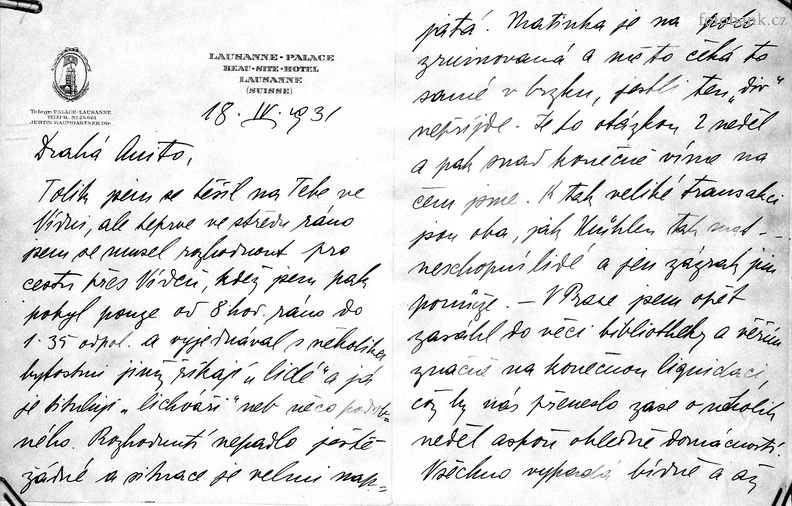 fotobank.cz
LAUSANNE-PALACE
BEAU-SITE-HOTEL
LAUSANNE
(SUISSE)
Telegr. PALACE-LAUSANNE
TELEPH. No 28.661
JUSTIN BAUMGARTNER, Dir.
18. IV. 1931
Drahá Anito,
Tolik jsem se těšil na Tebe ve
Vídni, ale teprve ve středu ráno
jsem se musel rozhodnout pro
cestu přes Vídeň, kdež jsem pak
pobyl pouze od 8 hod. ráno do
1.35 odpol. a vyjednával s několika
bytostmi jimž říkají „lidé“ a já
je tituluji „lichváři“ neb něco podob-
ného. Rozhodnutí nepadlo ještě
žádné a situace je velmi nap-
jatá. Matinka je na
zruinovaná a mě to čeká to
samé v brzku, jestli ten „div“
nepřijde. Je to otázkou 2 neděl
a pak snad konečně víme na
čem jsme. K tak veliké transakci
jsou oba, jak Kühlen tak mat-
neschopní lidé a jen zázrak jim
pomůže. – V Praze jsem opět
zasáhl do věci bibliotheky a věřím
značně na konečnou liquidaci,
což by nás přeneslo zase o několik
neděl aspoň ohledně domácnosti.
Všechno vypadá bídně a až